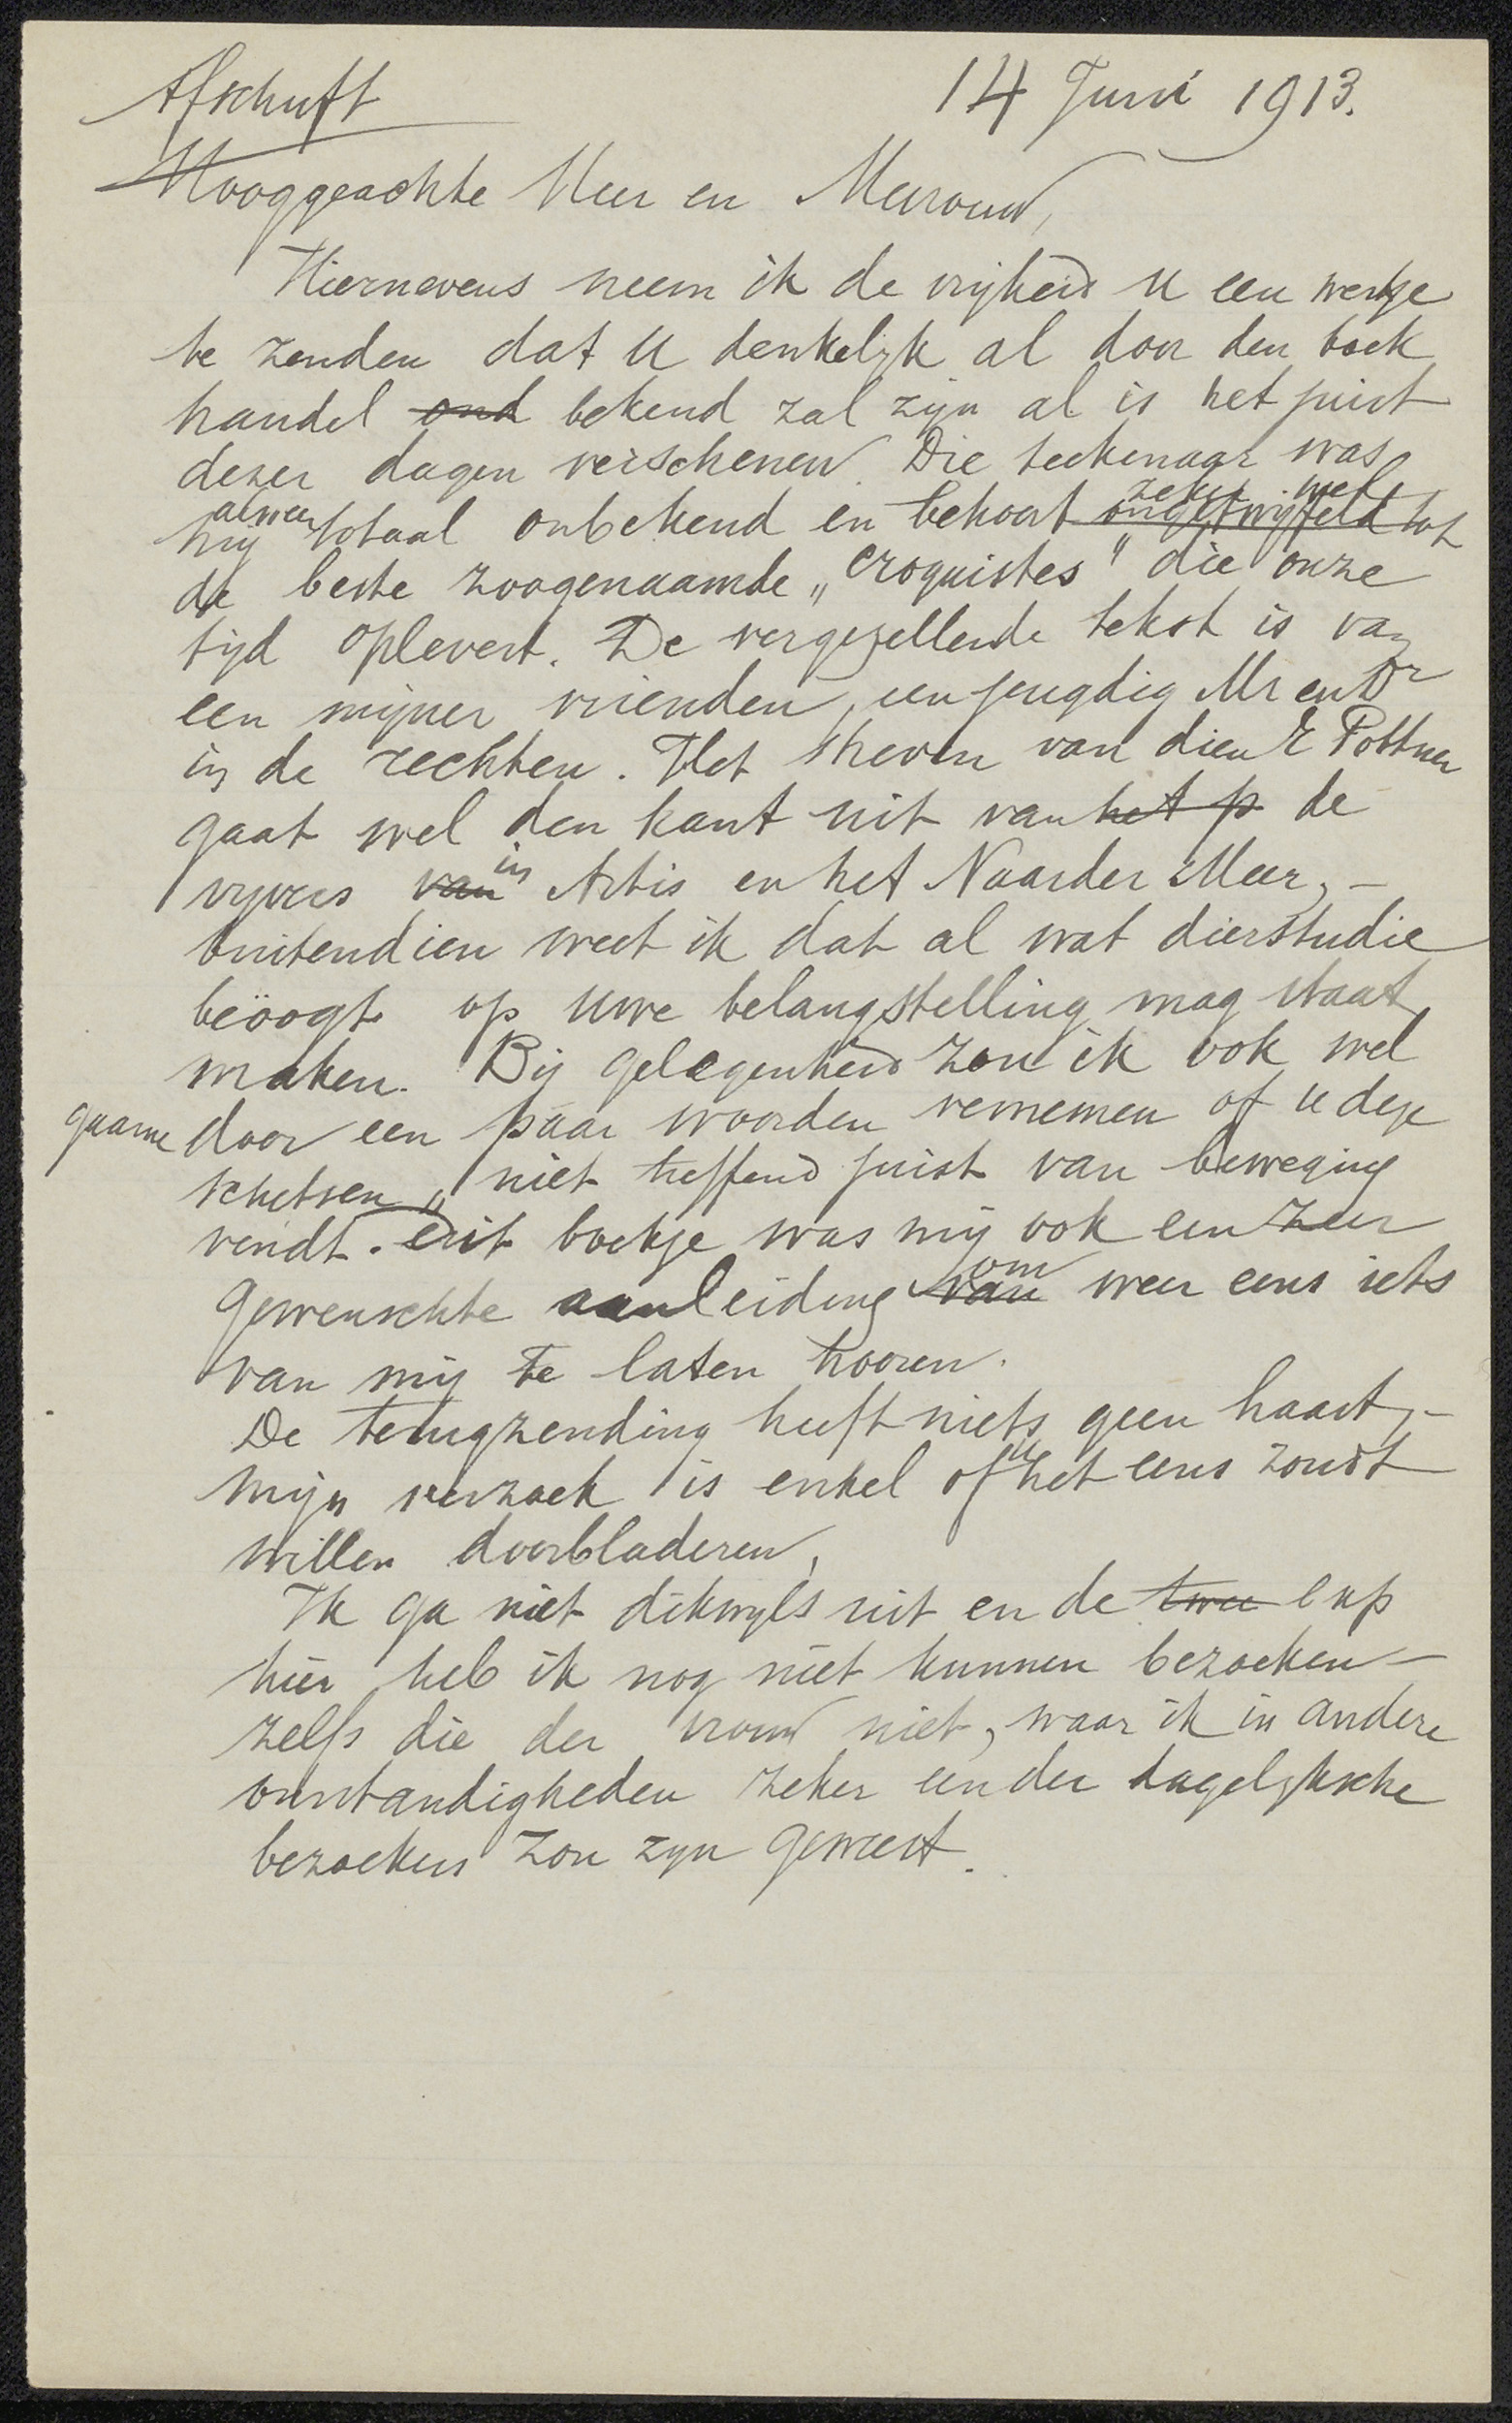 Afschrift
14 Juni 1913.
Hooggeachte Heer en Mevrouw,
Hiernevens neem ik de vrijheid U een werkje
te zenden dat U denkelijk al door den boek
handel ond bekend zal zijn al is het juist
dezer dagen verschenen. Die teekenaar was
mij alweer totaal onbekend en behoort ongetwijfeld zeker wel tot
de beste zoogenaamde „croquistes" die onze
tijd oplevert. De vergezellende tekst is van
een mijner vrienden, een jeugdig Mr en Dr
in de rechten. Het streven van dien E Pottner
gaat wel den kant uit van het p de
vijvers van in Artis en het Naarder Meer, –
buitendien weet ik dat al wat dierstudie
beöogt op Uwe belangstelling mag staat
maken. Bij gelegenheid zou ik ook wel
gaarne door een paar woorden vernemen of U deze
schetsen „niet treffend juist van beweging
vindt. Dit boekje was mij ook een zeer
gewenschte aanleiding van om weer eens iets
van mij te laten hooren.
De terugzending heeft niets geen haast, –
mijn verzoek is enkel of U het eens zoudt
willen doorbladeren,
Ik ga niet dikwijls uit en de twee exp
hier heb ik nog niet kunnen bezoeken –
zelfs die der vrouw niet, waar ik in andere
omstandigheden zeker een der dagelijksche
bezoekers zou zijn geweest.